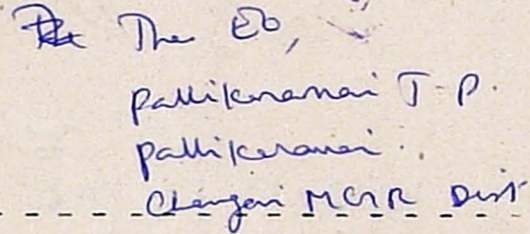 The EO,
Pallikaranai T.P.
Pallikaranai.
Chengai MGR Dist